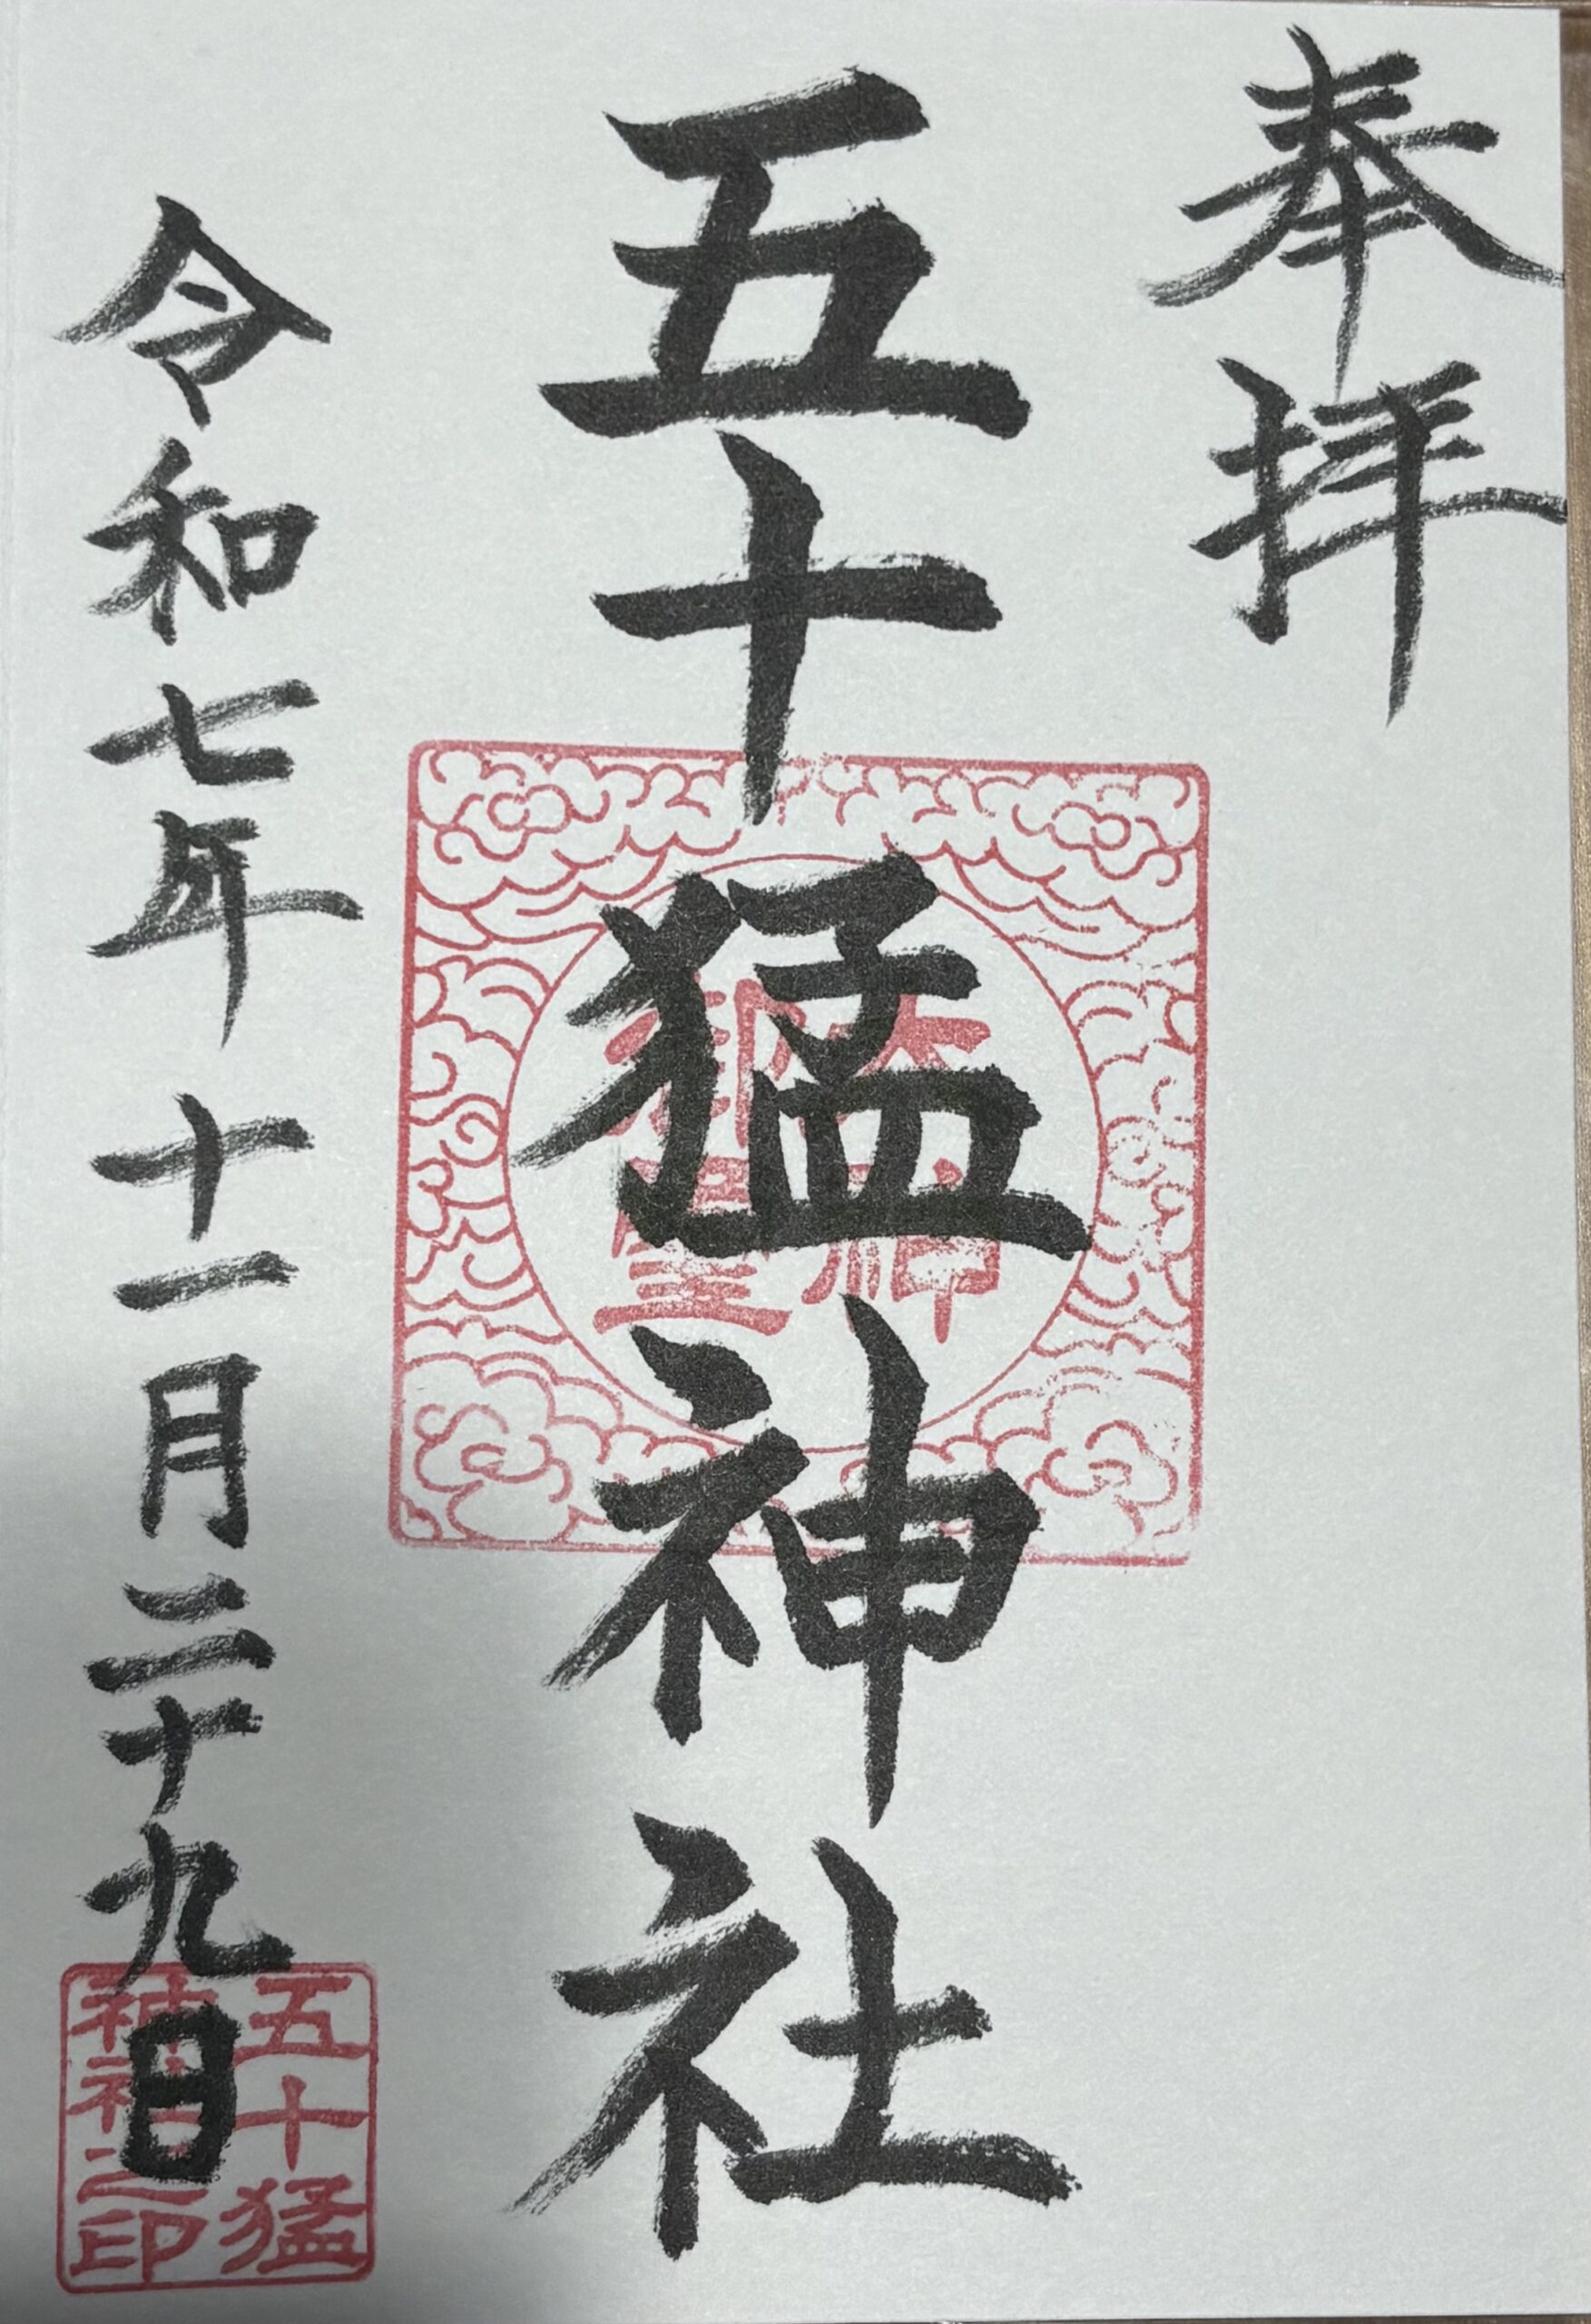 奉拝
五十猛神社
令和七年十一月二十九日
五十猛
神社之印